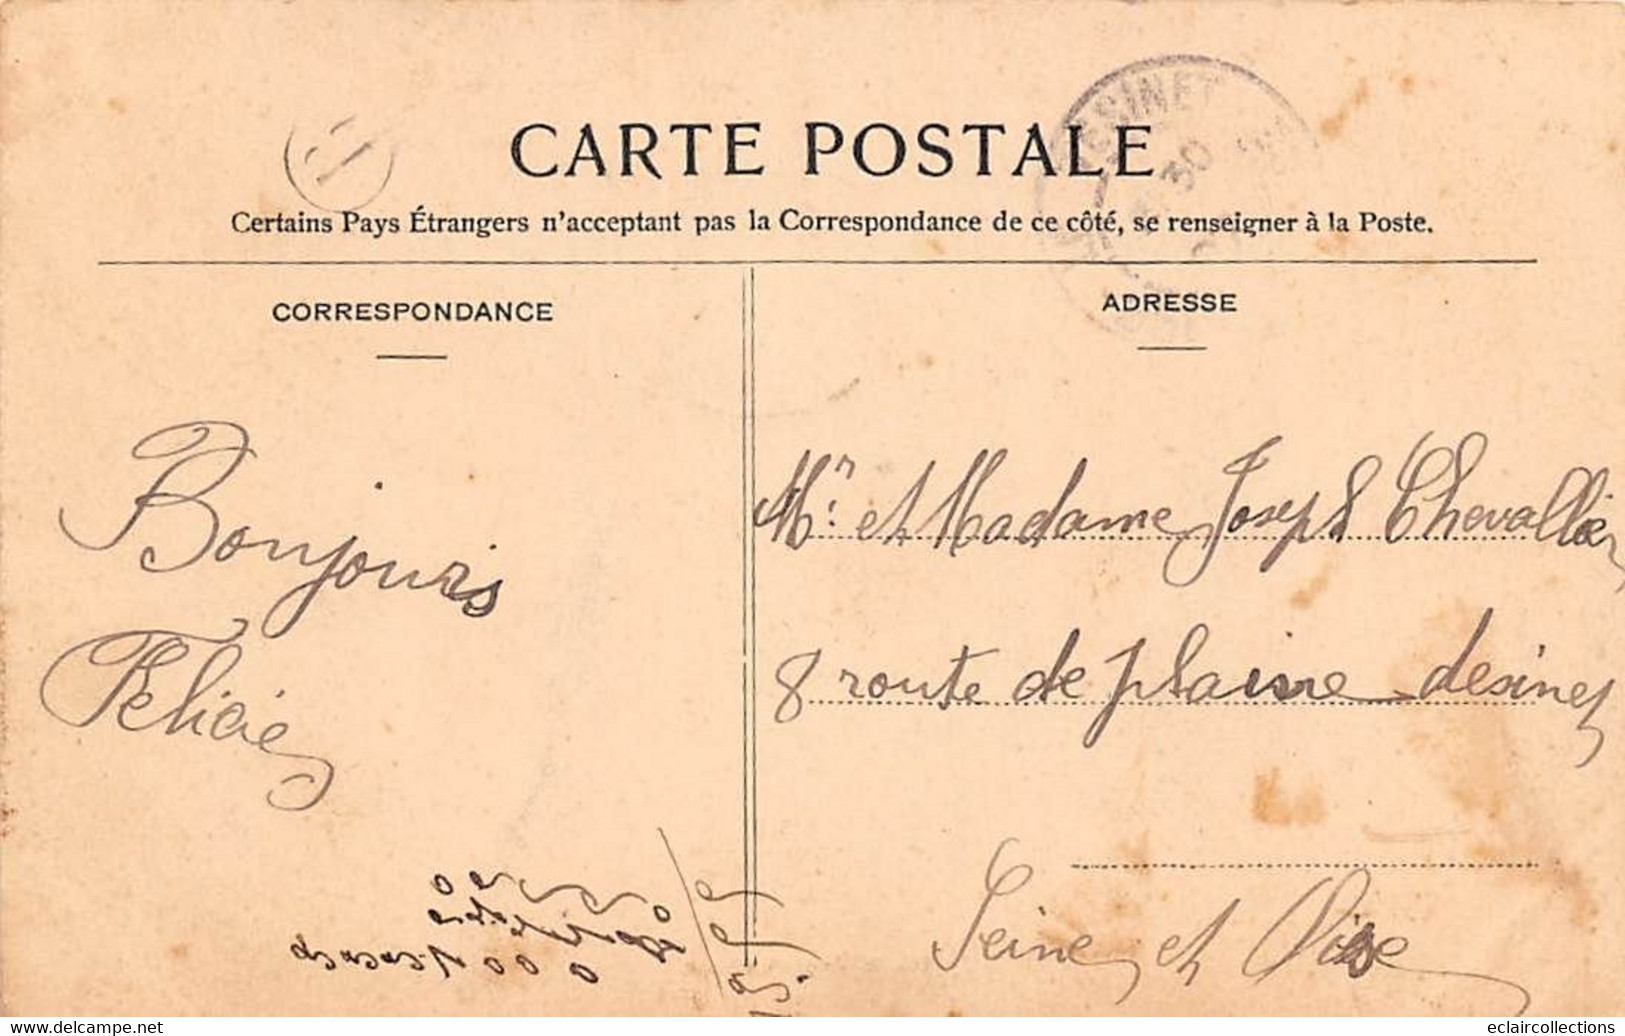 CARTE POSTALE
Certains Pays Étrangers n'acceptant pas la Correspondance de ce côté, se renseigner à la Poste.
CORRESPONDANCE
ADRESSE
Bonjours
Félicie
Mr. et Madame Joseph Chevallier
8 route de plaine desinet
Seine et Oise
ESINET
30
www.delcampe.net
eclaircollections